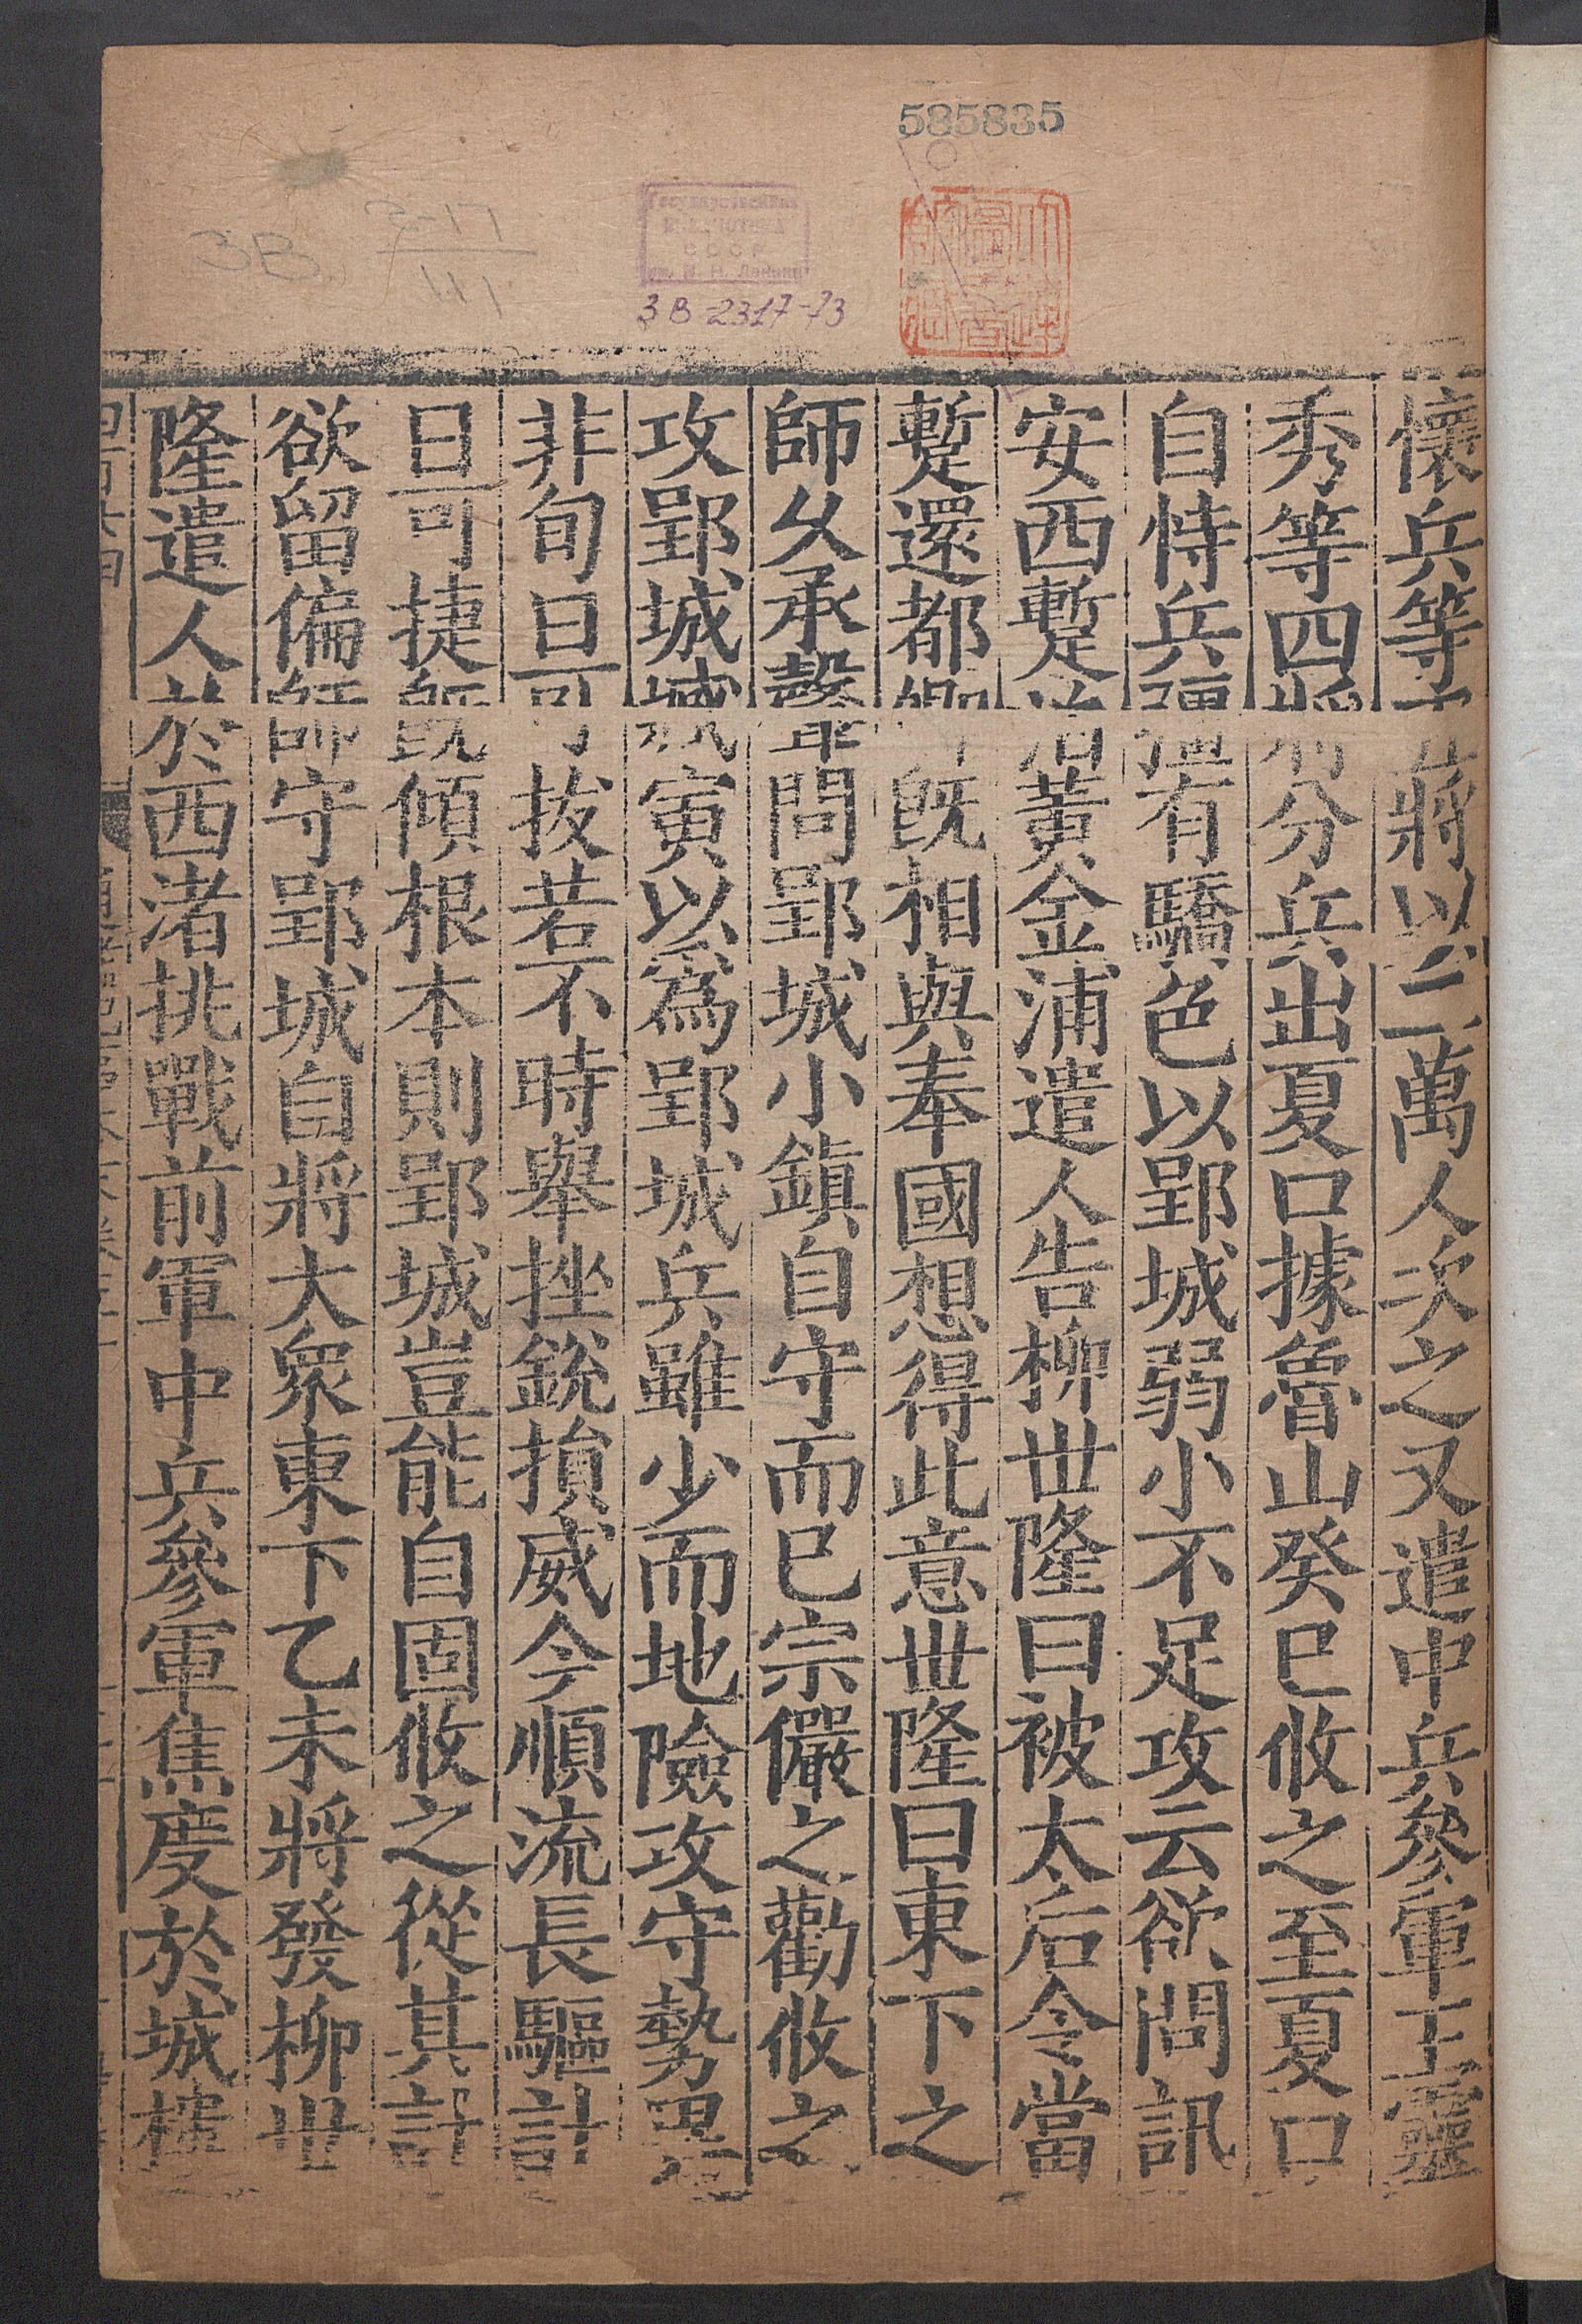 585835
Государственная
БИБЛИОТЕКА
СССР
им. В. И. Ленина
3В 2-17
111
3В-2317-73
懷兵等五將以二萬人次之又遣中兵參軍王靈
秀等四將分兵出夏口據魯山癸巳攸之至夏口
自恃兵彊有驕色以郢城弱小不足攻云欲問訊
安西暫泊黃金浦遣人告柳世隆曰被太后令當
蹔還都卿既相與奉國想得此意世隆曰東下之
師久承聲問郢城小鎮自守而已宗儼之勸攸之
攻郢城臧寅以爲郢城兵雖少而地險攻守勢異
非旬日可拔若不時舉挫銳損威今順流長驅計
日可捷既傾根本則郢城豈能自固攸之從其計
欲留偏師守郢城自將大衆東下乙未將發柳世
隆遣人於西渚挑戰前軍中兵參軍焦度於城樓